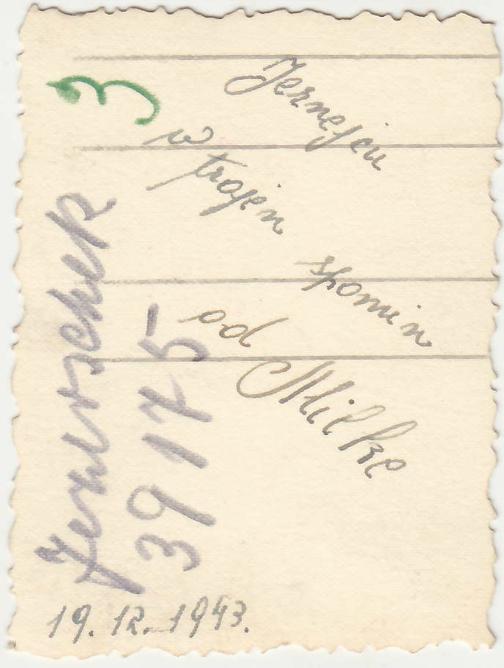 3
Jernejcu
v trajen
spomin
od
Milke
Jenuschek
39175
19.12.1943.